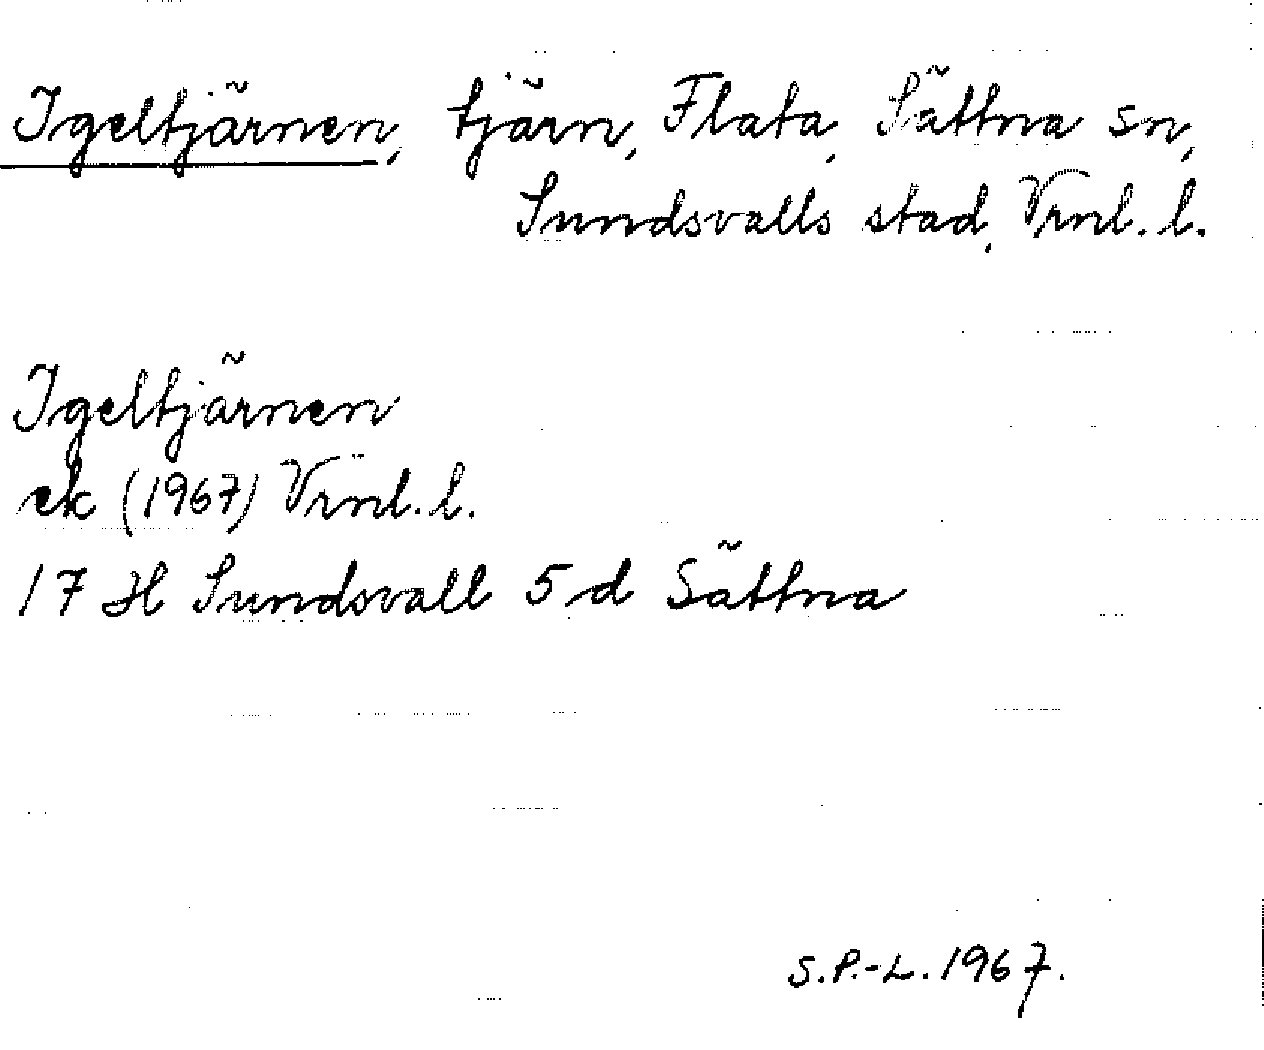 Igeltjärnen, tjärn, Flata, Sättna sn,
Sundsvalls stad, Vrnl. l.
Igeltjärnen
ek (1967) Vrnl. l.
17 H Sundsvall 5 d Sättna
S.P.-L. 1967.